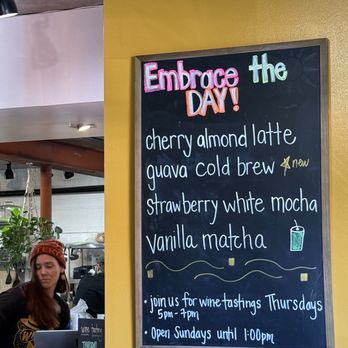 Embrace the
DAY!
cherry almond latte
guava cold brew new
strawberry white mocha
vanilla matcha
• join us for wine tastings Thursdays
5pm - 7pm
• Open Sundays until 1:00pm
wine tasting